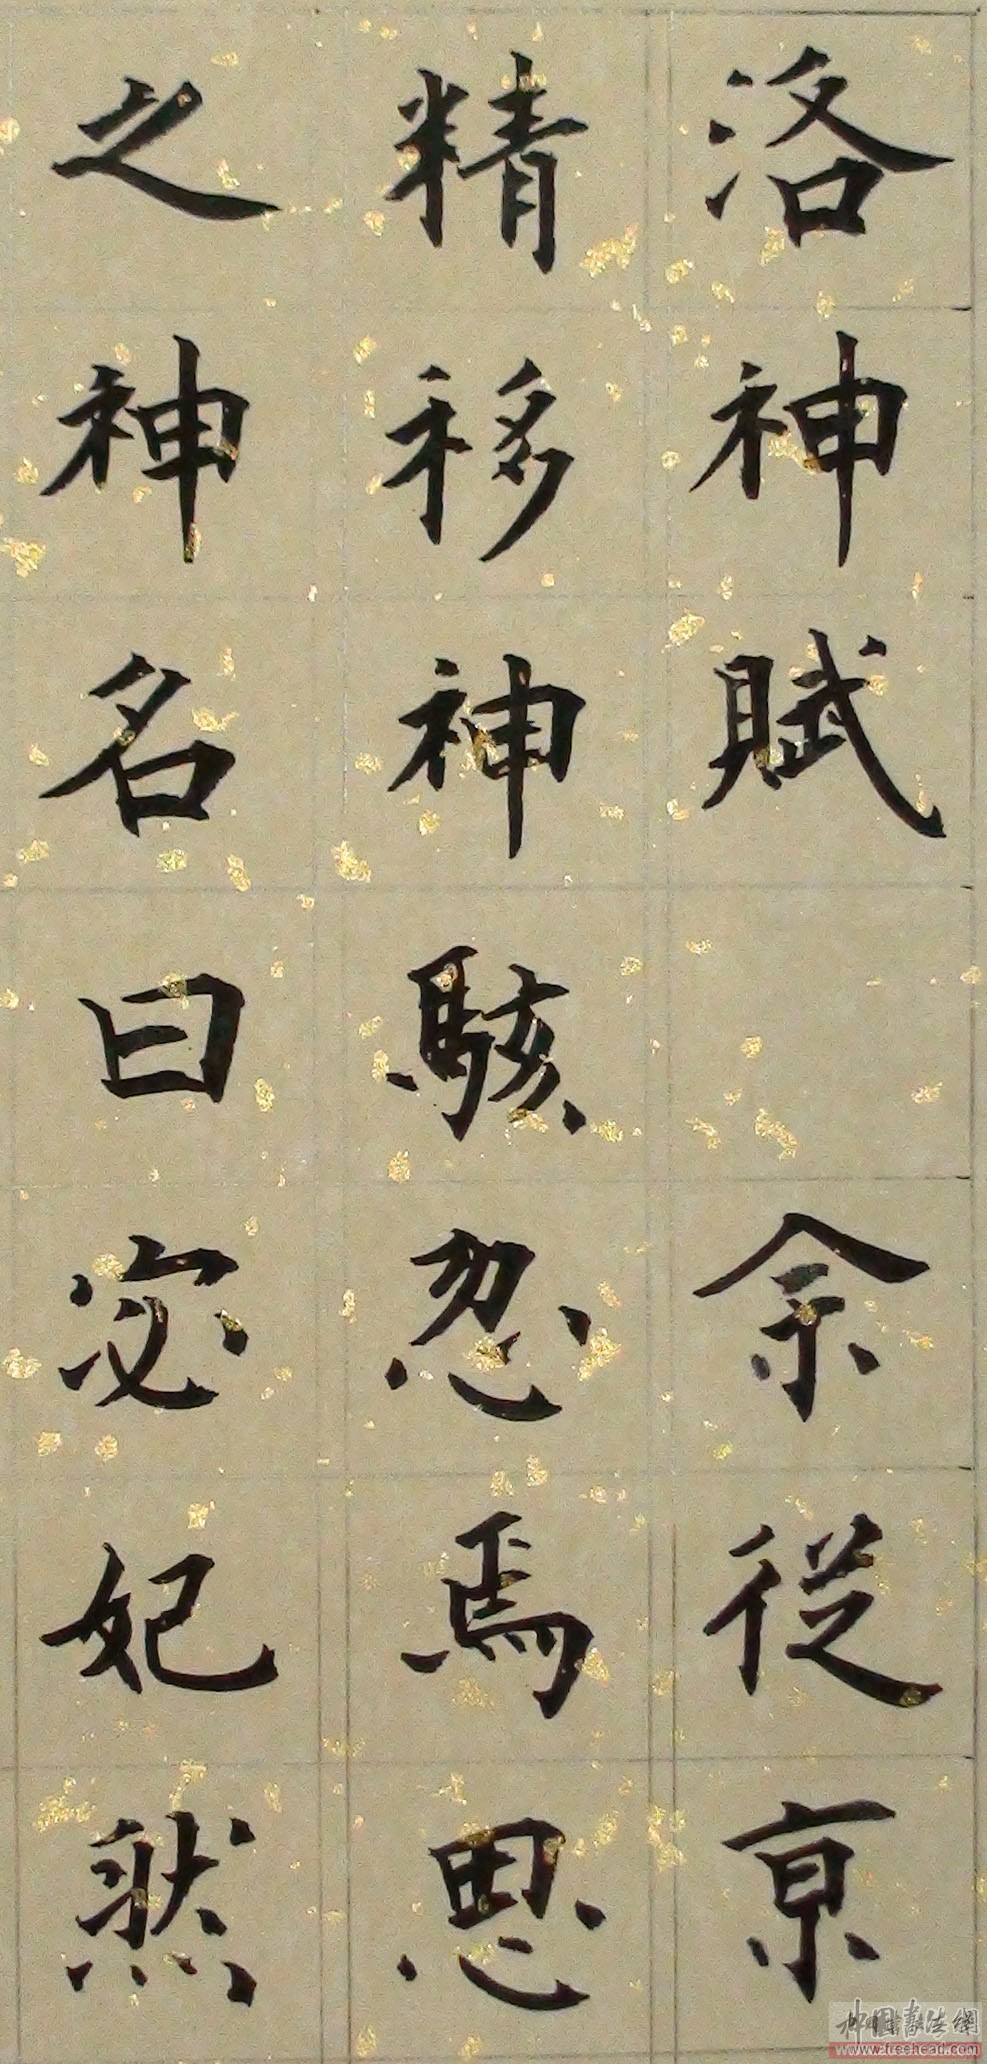 洛神賦 余從京
精移神駭忽焉思
之神名曰宓妃然
中国书法網
www.freehead.com